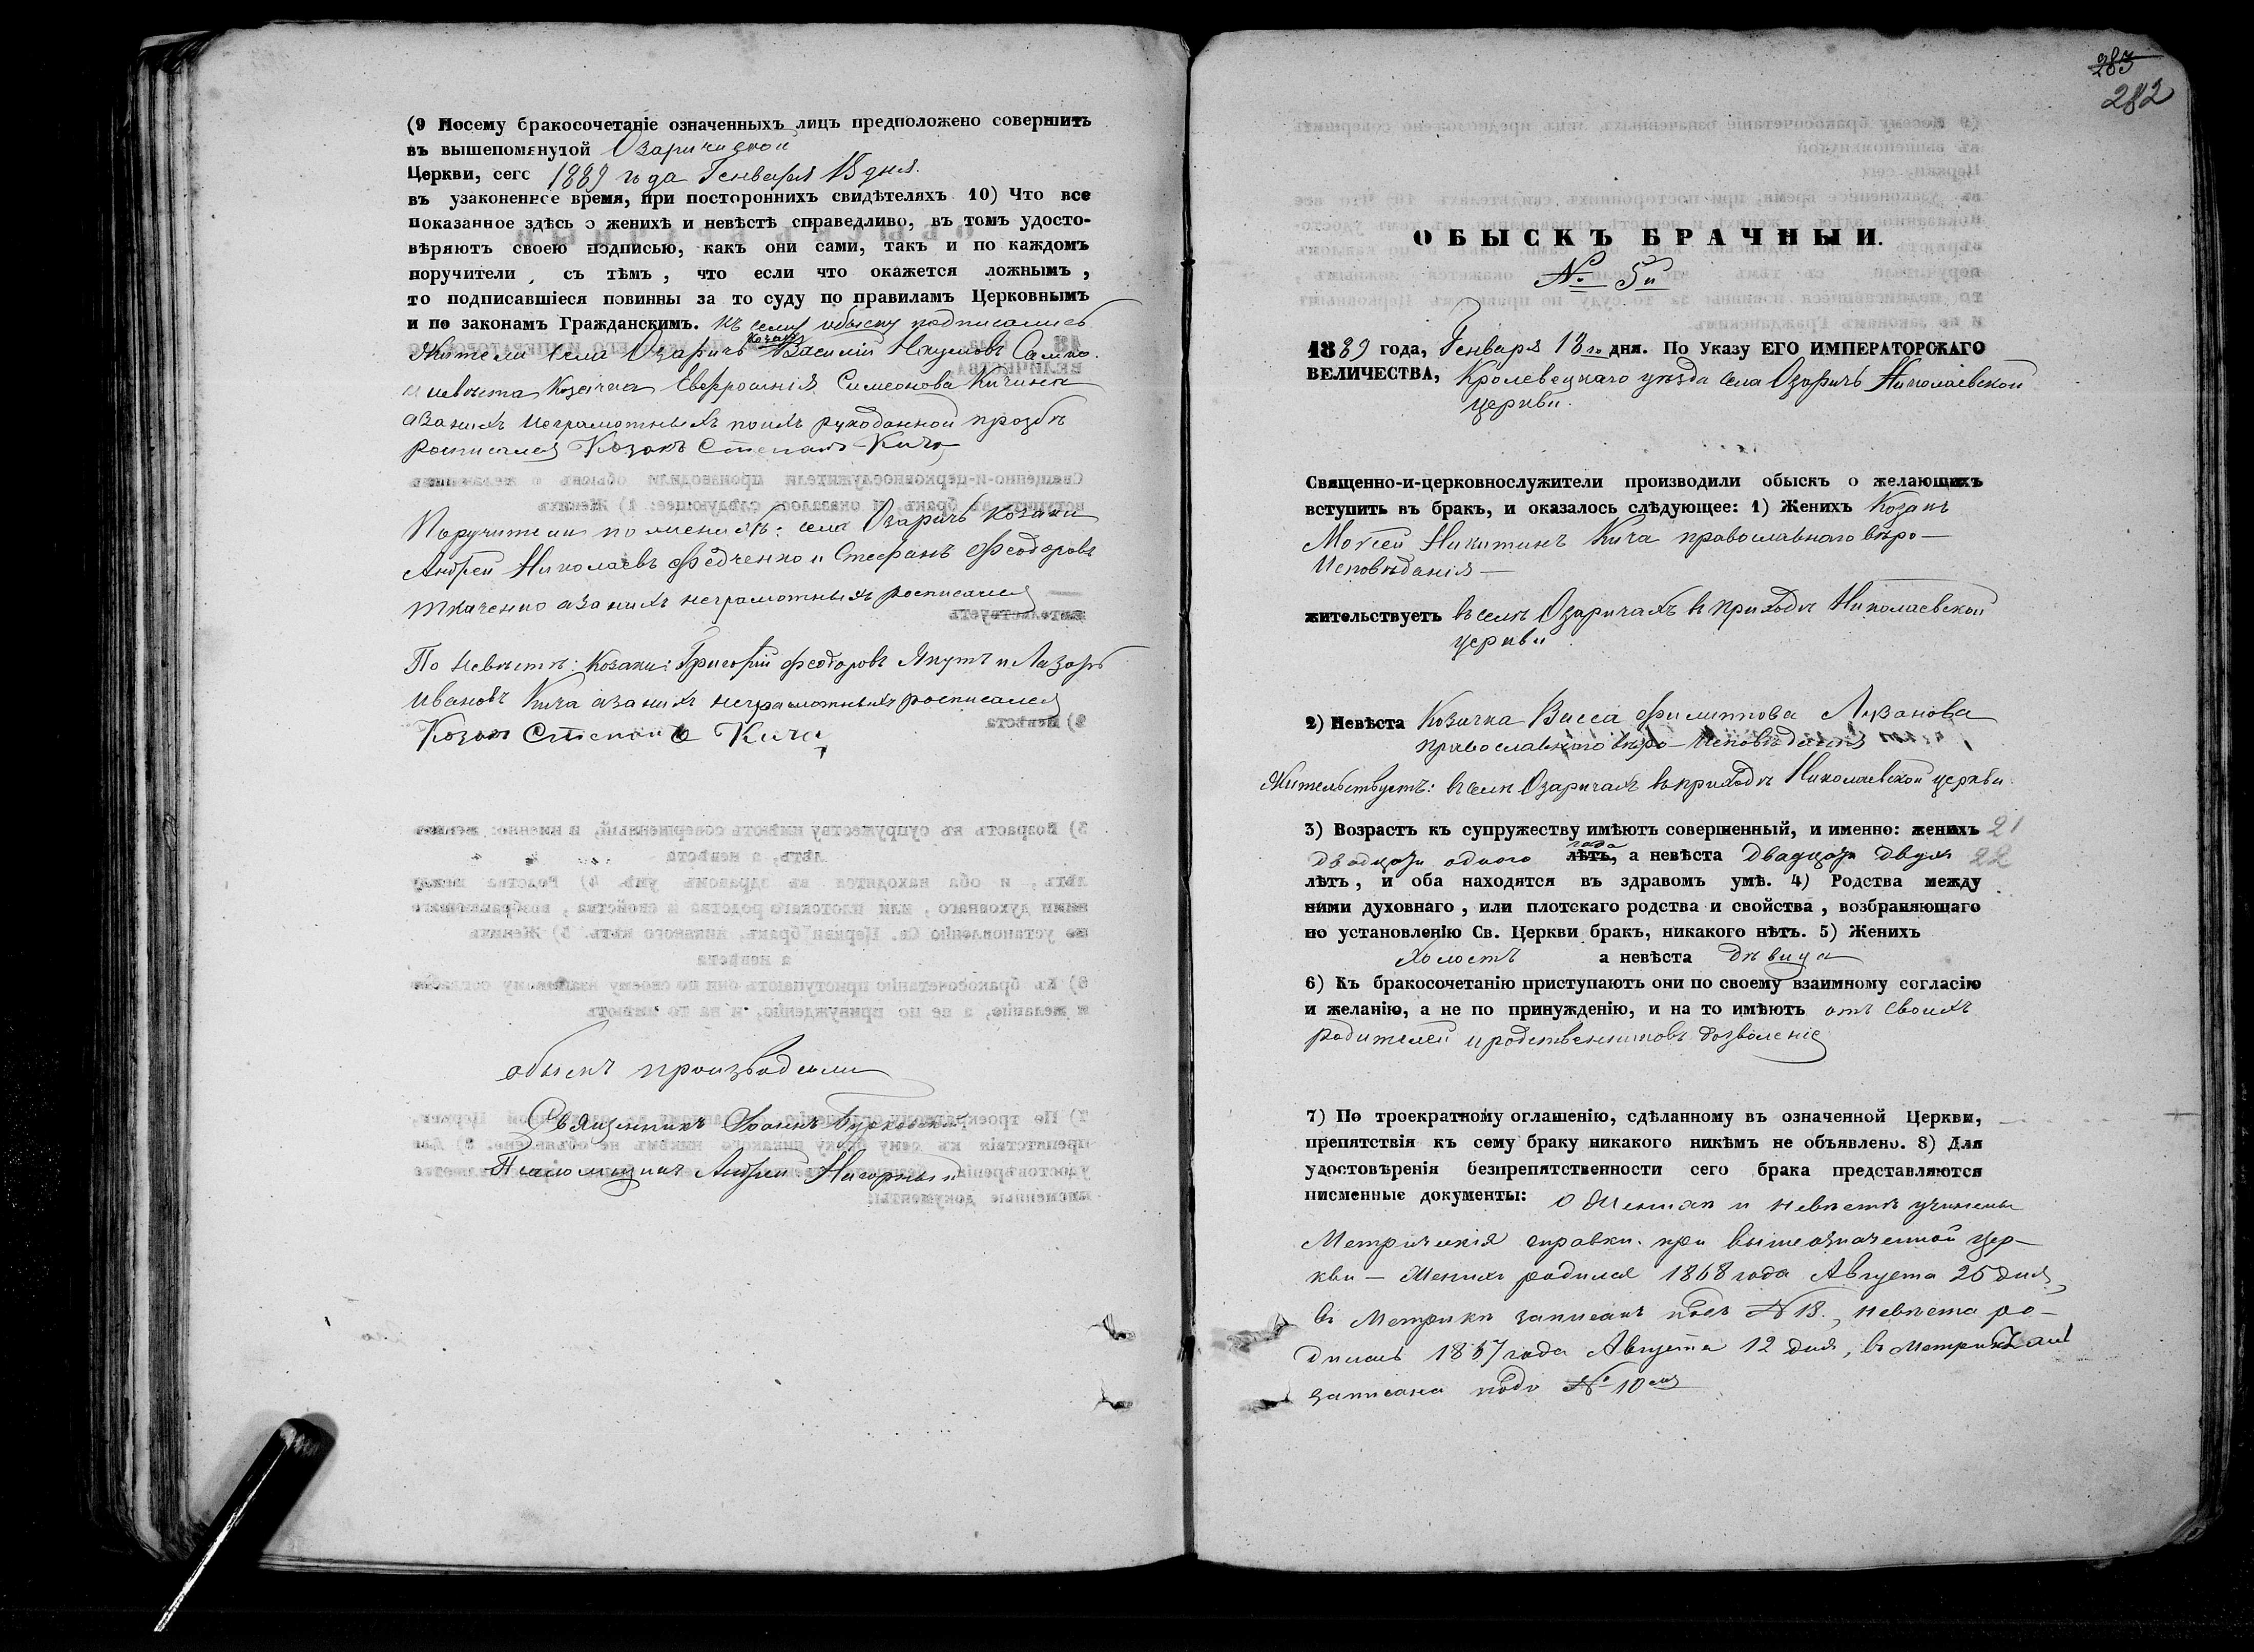 (9 Посему бракосочетаніе означенныхъ лицъ предположено совершить
въ вышепомянутой Озаричской
Церкви, сего 1889 года Генваря 13 дня.
въ узаконенное время, при постороннихъ свидѣтеляхъ 10) Что все
показанное здѣсь о женихѣ и невѣстѣ справедливо, въ томъ удосто-
вѣряютъ своею подписью, какъ они сами, такъ и по каждомъ
поручители, съ тѣмъ, что если что окажется ложнымъ,
то подписавшіеся повинны за то суду по правиламъ Церковнымъ
и по законамъ Гражданскимъ. Къ сему обыску подписались
Жители села Озаричъ козакъ Василій Наумовъ
и невѣста Козачка Евфросинія Симеонова Кичина
а за нихъ неграмотныхъ по ихъ рукоданной прозбѣ
росписался Козакъ Степанъ Кича
Поручители по женихѣ: села Озаричъ козаки
Андрей Николаевъ Федченко и Стефанъ Феодоровъ
Ткаченко а за нихъ неграмотныхъ росписался
По невѣстѣ: Козаки: Григорій Феодоровъ Якутъ и Лазарь
Ивановъ Кича а за нихъ неграмотныхъ росписался
Козакъ Степанъ Кича
обыскъ производили
Священникъ Іоаннъ
Псаломщикъ Андрей Нагорный
283
282
ОБЫСКЪ БРАЧНЫЙ.
№ 5й
1889 года, Генваря 13го дня. По Указу ЕГО ИМПЕРАТОРСКАГО
ВЕЛИЧЕСТВА, Кролевецкаго уѣзда села Озаричъ Николаевской
церкви.
Священно-и-церковнослужители производили обыскъ о желающихъ
вступить въ бракъ, и оказалось слѣдующее: 1) Женихъ Козакъ
Моѵсей Никитинъ Кича православнаго вѣро-
исповѣданія
жительствуетъ въ селѣ Озаричахъ въ приходѣ Николаевской
церкви
2) Невѣста Козачка Васса Филиппова Лузанова
православнаго вѣро-исповѣданія
Жительствуетъ: въ селѣ Озаричахъ въ приходѣ Николаевской церкви.
3) Возрастъ къ супружеству имѣютъ совершенный, и именно: женихъ 21
двадцати одного года лѣтъ, а невѣста двадцати двухъ 22
лѣтъ, и оба находятся въ здравомъ умѣ. 4) Родства между
ними духовнаго, или плотскаго родства и свойства, возбраняющаго
по установленію Св. Церкви бракъ, никакого нѣтъ. 5) Женихъ
холостъ а невѣста дѣвица
6) Къ бракосочетанію приступаютъ они по своему взаимному согласію
и желанію, а не по принужденію, и на то имѣютъ отъ своихъ
родителей и родственниковъ дозволеніе
7) По троекратному оглашенію, сдѣланному въ означенной Церкви,
препятствія къ сему браку никакого никѣмъ не объявлено. 8) Для
удостовѣренія безпрепятственности сего брака представляются
писменные документы: О женихѣ и невѣстѣ учинены
Метрическія справки при вышеозначенной цер-
кви — Женихъ родился 1868 года Августа 25 дня,
въ Метрикѣ записанъ подъ № 18., невѣста ро-
дилась 1867 года Августа 12 дня, въ метрикѣ
записана подъ № 10